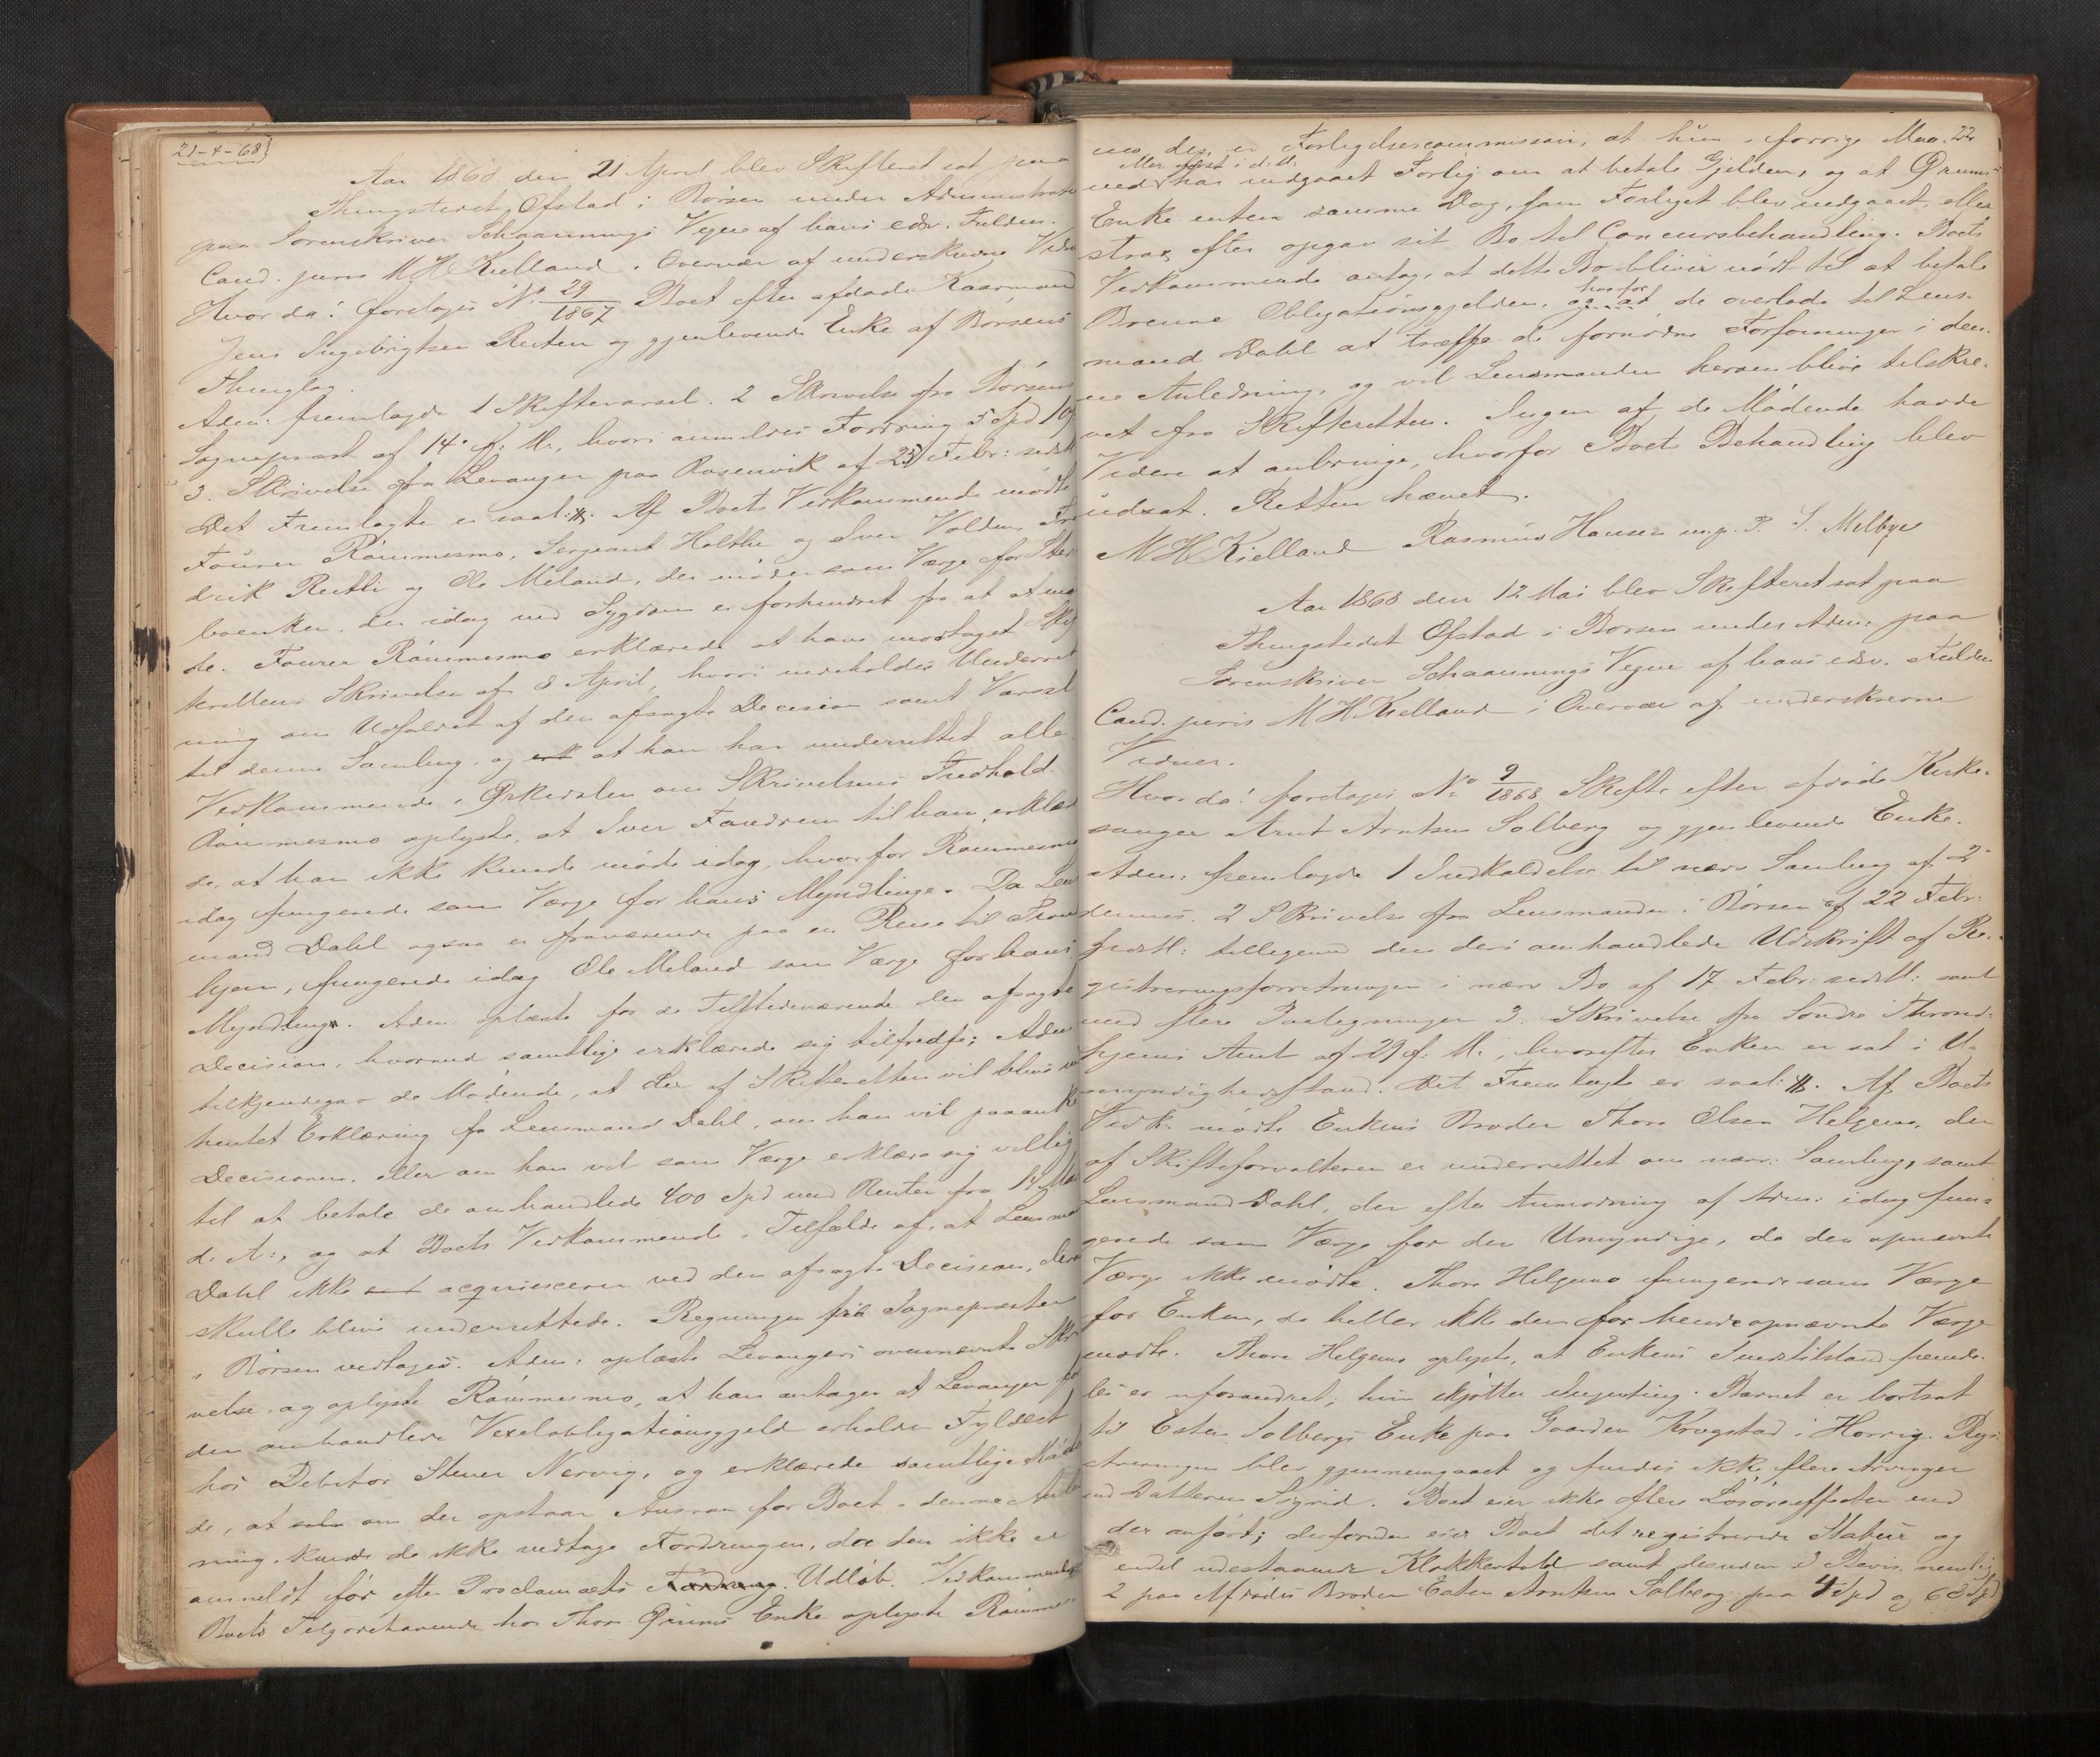 21-4-68
Aar 1868 den 21 April blev Skifteret sat paa
Thingstedet Ofstad i Børsen under Administration
paa Sorenskriver Schaannings Vegne af hans edsv. Fuldm.
Cand. juris M H Kielland i Overvær af underskrevne Vidner
Hvor da: foretoges No 29/1867 Boet efter afdøde Kaarmand
Jens Ingebrigtsen Reiten og gjenlevende Enke af Børsens
Thinglag.
Adm: fremlagde 1 Skiftevarsel. 2 Skrivelse fra Børsens
Sogneprest af 14de f: M:, hvori anmeldes Fordring 5 Spd 109
3. Skrivelse fra Levanger paa Rosenvik af 23 Febr: sidstl
Det Fremlagte er saal: #. Af Boets Vedkommende mødte
Fourer Rømmesmo, Sergeant Holthe og Iver Volden, Fre
drik Reitli og Ole Meland, der møder som Værge for Ster
boenken, der idag ved Sygdom er forhindret fra at mø
de. Fourer Rømmesmo erklærede at have modtaget Skif
terettens Skrivelse af 8 April, hvori indeholdes Underret
ning om Udfaldet af den afsagte Decision samt Varsel
til denne Samling, og at han har underrettet alle
Vedkommende i Ørkedalen om Skrivelsens Indhold.
Rømmesmo oplyste, at Iver Fandrem til ham erklære
de, at han ikke kunde møde idag, hvorfor Rømmesmo
idag fungerede som Værge for hans Myndlinge. Da Lens
mand Dahl ogsaa er fraværende paa en Reise til Thrond
hjem, fungerede idag Ole Meland som Værge for hans
Myndling. Adm: oplæste for de Tilstedeværende den afsagte
Decision, hvormed samtlige erklærede sig tilfredse; Adm
tilkjendegav de Mødende, at der af Skifteretten vil blive ind
hentet Erklæring fra Lensmand Dahl, om han vil paaanke
Decisionen, eller om han vil som Værge erklære sig villig
til at betale de omhandlede 400 Spd med Renter fra 14 Mai
d: A:, og at Boets Vedkommende i Tilfælde af, at Lensmand
Dahl ikke acquiescerer ved den afsagte Decision, derom
skulle blive underrettede. Regningen fra Sognepresten
i Børsen vedtoges. Adm: oplæste Levangers ovennævnte Skri
velse, og oplyste Rømmesmo, at han antager at Levanger for
den omhandlede Vexelobligationsgjeld erholder Fyldest
hos Debitor Stener Nervig, og erklærede samtlige Møden
de, at om der opstaar Ansvar for Boet i denne Anled
ning, kunde de ikke vedtage Fordringen, da den ikke er
anmeldt før efter Proclamaets Udløb. Vedkommende
Boets Tilgodehavende hos Thore Ørums Enke oplyste Rømmes
22
mo, der er Forligelsescommissair, at hun i forrige Maa-
ned har indgaaet Forlig om at betale Gjelden, og at Ørums
Enke enten samme Dag, som Forliget blev indgaaet, eller
strax efter opgav sit Bo til Concursbehandling. Boets
Vedkommende antog, at dette Bo bliver nødt til at betale
Brenne Obligationsgjelden, hvorfor de overlode til Lens-
mand Dahl at træffe de fornødne Forføininger i den-
ne Anledning, og vil Lensmanden herom blive tilskre-
vet fra Skifteretten. Ingen af de Mødende havde
Videre at anbringe, hvorfor Boets Behandling blev
udsat. Retten hævet.
M H Kielland Rasmus Hansen m.p. P. S. Melbye
Aar 1868 den 12 Mai blev Skifteret sat paa
Thingstedet Ofstad i Børsen under Adm: paa
Sorenskriver Schaannings Vegne af hans edsv. Fuldm
Cand. juris M H Kielland i Overvær af underskrevne
Vidner.
Hvor da: foretoges No 9/1868 Skifte efter afdøde Kirke-
sanger Arnt Arntsen Solberg og gjenlevende Enke.
Adm: fremlagde 1 Indkaldelse til nærv Samling af 2
dennes. 2 Skrivelse fra Lensmanden i Børsen af 22 Febr:
sidstl: tilligemed den deri omhandlede Udskrift af Re-
gistreringsforretningen i nærv Bo af 17 Febr: sidstl: samt
med flere Paategninger 3. Skrivelse fra Søndre Thrond-
hjems Amt af 29 f: M:, hvorefter Enken er sat i U-
myndighedsstand. Det Fremlagte er saal: #. Af Boets
Vedk. mødte Enkens Broder Thore Olsen Helgemo, der
af Skifteforvalteren er underrettet om nærv: Samling, samt
Lensmand Dahl, der efter Anmodning af Adm: idag fun-
gerede som Værge for den Umyndige, da den opnævnte
Værge ikke mødte. Thore Helgemo fungerede som Værge
for Enken, da heller ikke den for hende opnævnte Værge
mødte. Thore Helgemo oplyste, at Enkens Sindstilstand fremde-
les er uforandret; hun skjøtter Ingenting. Barnet er bortsat
til Esten Solbergs Enke paa Gaarden Krogstad i Horrig. Regi-
streringen blev gjennemgaaet og findes ikke flere Arvinger
end Datteren Sigrid. Boet eier ikke flere Løsøreeffecter end
der anført; desforuden eier Boet det registrerede Stabur og
endel udestaaende Klokkertold samt desuden 3 Bevis, nemlig
2 paa Afdødes Broder Esten Arntsen Solberg paa 4 Spd og 68 Spd